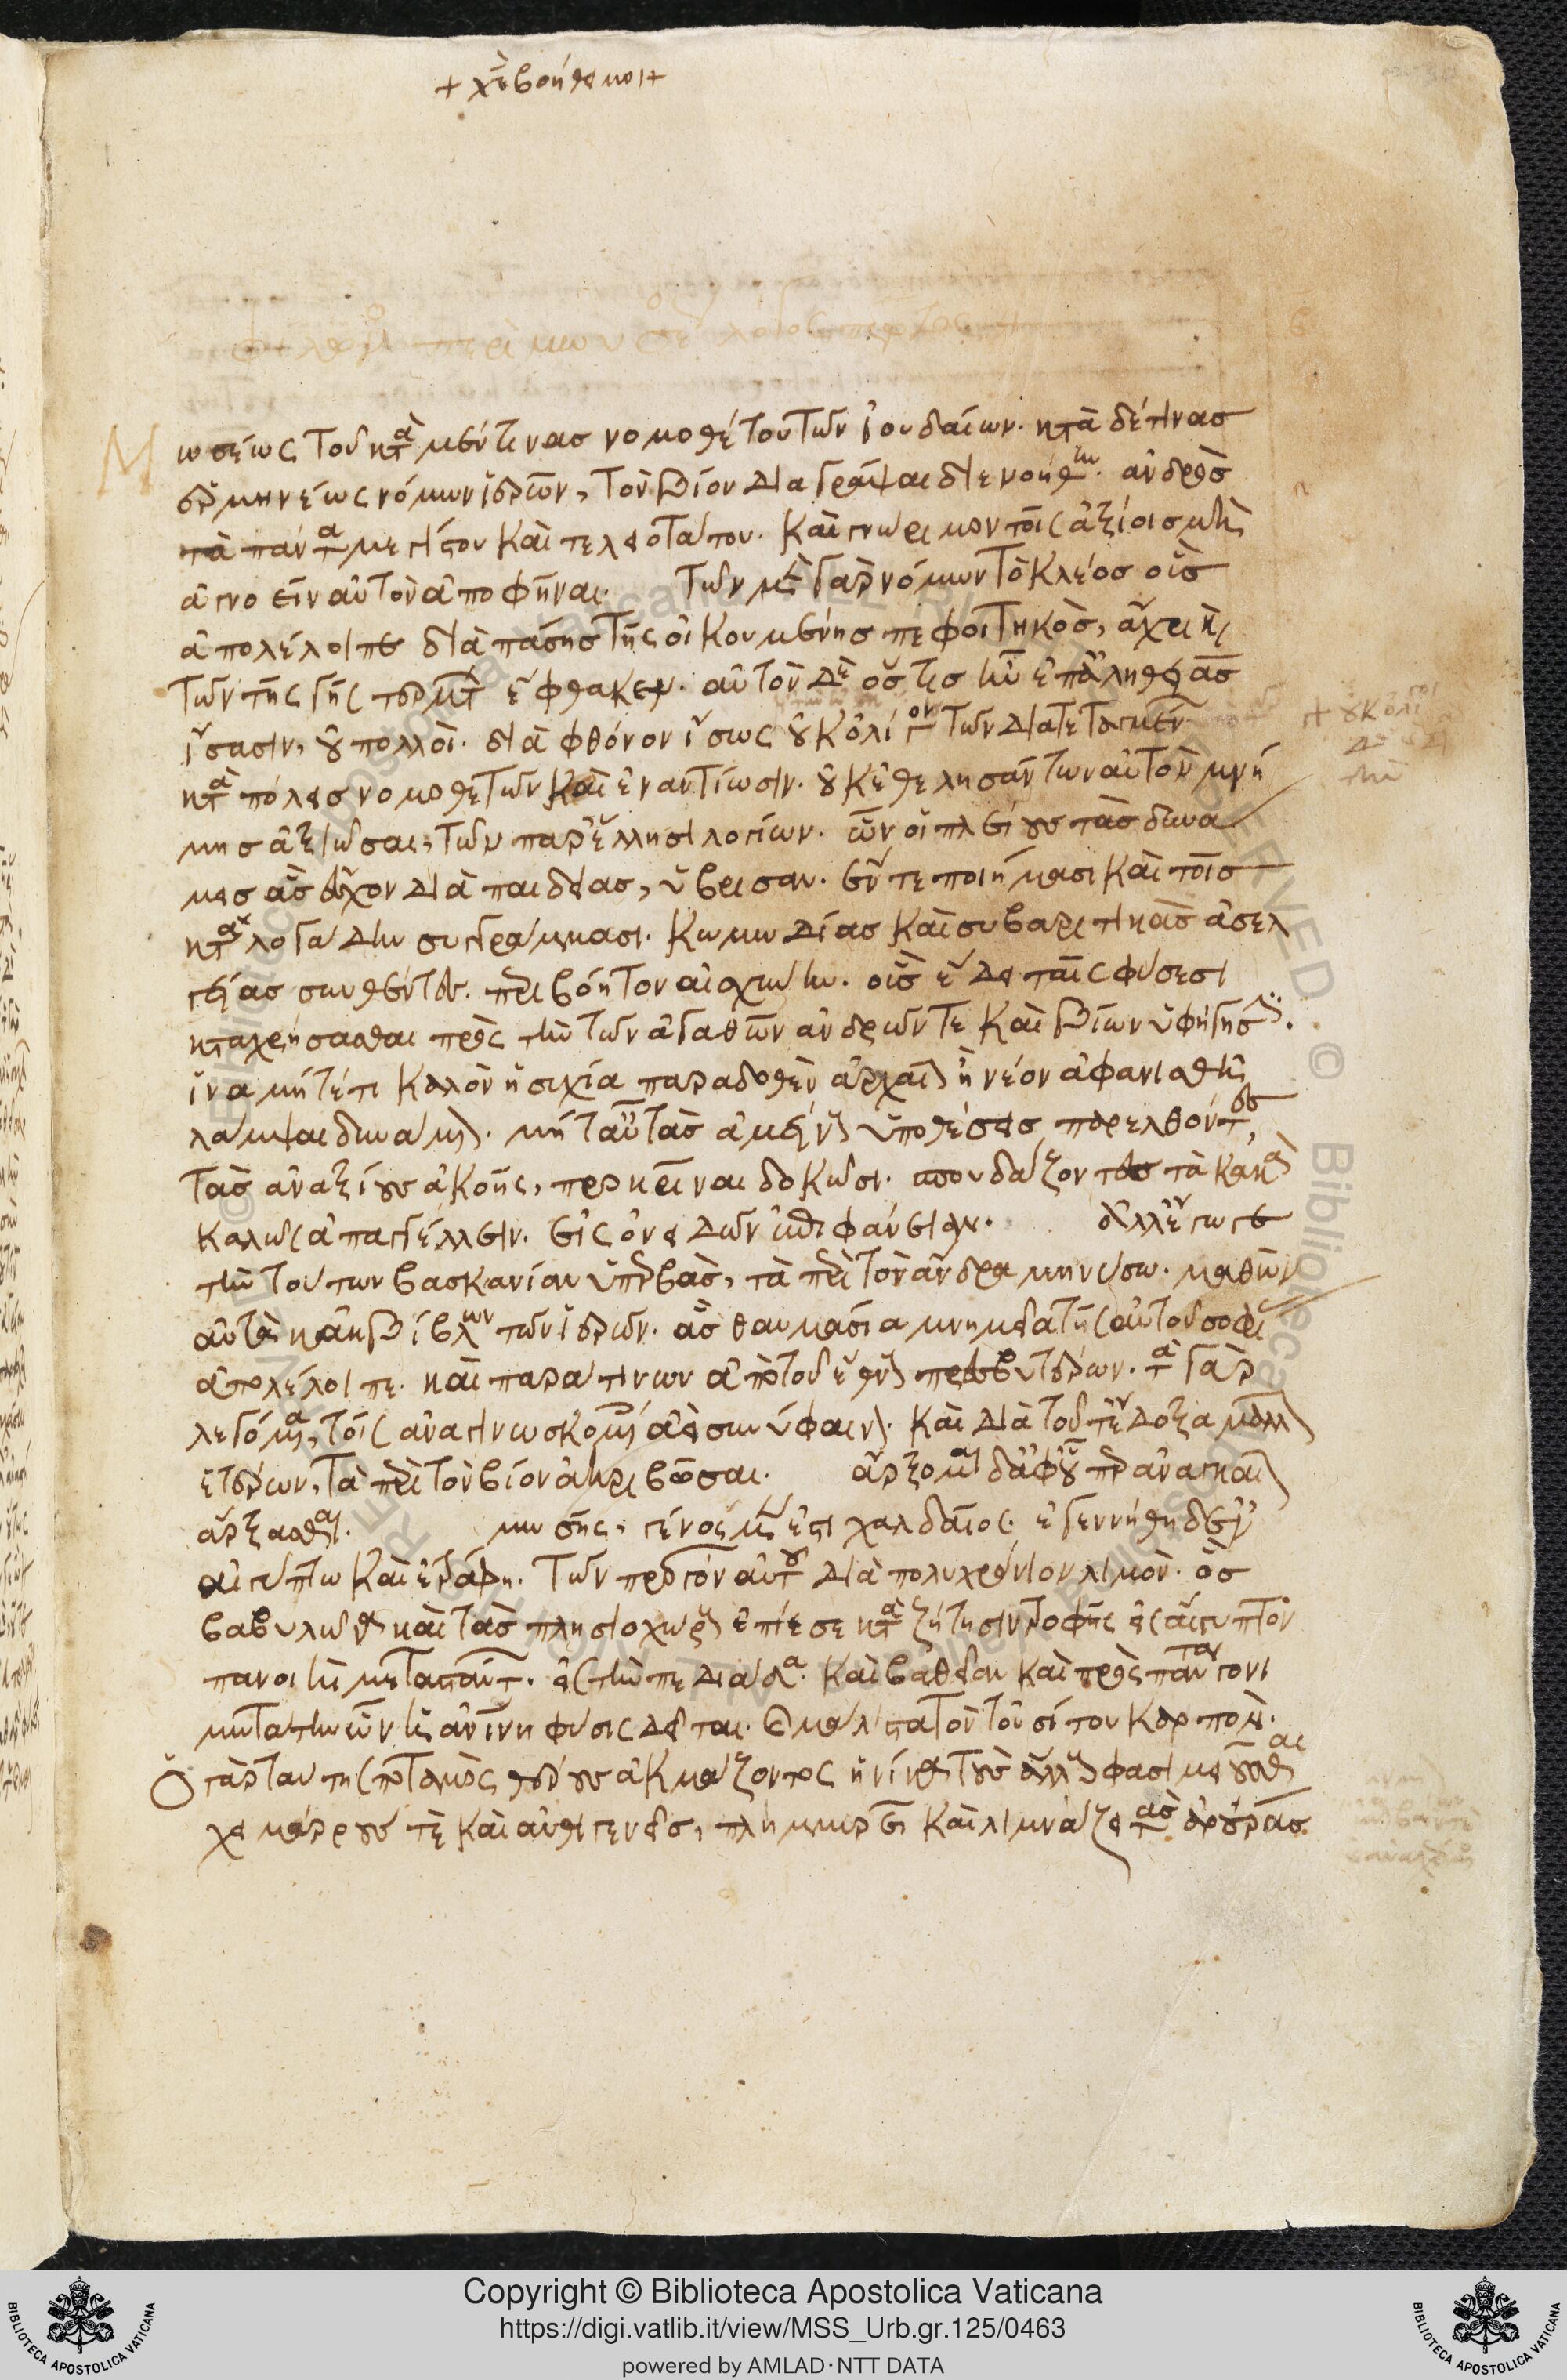 + χε βοήθει μοι +
Μωσέως τοῦ κατὰ μέν τινας νομοθέτου τῶν ἰουδαίων. κατὰ δέ τινας
ἑρμηνέως νόμων ἱερῶν, τὸν βίον ἀναγράψαι διενοήθην. ἀνδρὸς
τὰ πάντα μεγίστου καὶ τελειοτάτου. καὶ γνώριμον τοῖς ἀξίοις μὴ
ἀγνοεῖν αὐτὸν ἀποφῆναι. Τῶν μὲν γὰρ νόμων τὸ κλέος οὓς
ἀπολέλοιπε διὰ πάσης τῆς οἰκουμένης πεφοιτηκὸς, ἄχρι καὶ
τῶν τῆς γῆς τερμάτων ἔφθακεν. αὐτὸν δὲ ὅστις ἦν ἐπ' ἀληθείας
ἴσασιν, οὐ πολλοί. διὰ φθόνον ἴσως οὐκ ὀλίγον τῶν διατεταγμένων
κατὰ πόλεις νομοθετῶν καὶ ἐναντίωσιν. οὐκ ἐθελησάντων αὐτὸν μνή
μης ἀξιῶσαι, τῶν παρ' ἕλλησι λογίων. ὧν οἱ πλείους τὰς δυνά
μεις ἃς ἔσχον διὰ παιδείας, ὕβρισαν. ἔν τε ποιήμασι καὶ τοῖς
καταλογάδην συγγράμμασι. κωμωδίας καὶ συβαριτικὰς ἀσελ
γείας συνθέντες. περιβόητον αἰσχύνην. οὓς ἔδει ταῖς φύσεσι
καταχρήσασθαι πρὸς τὴν τῶν ἀγαθῶν ἀνδρῶν τε καὶ βίων ὑφήγησιν.
ἵνα μήτε τι καλὸν ἡσυχία παραδοθὲν ἀρχαῖον ἢ νέον ἀφανισθῆ
λάμψαι δυνάμενον. μήτ' αὖ τὰς ἀμείνους ὑποθέσεις παρελθόντες
τὰς ἀναξίους ἀκοῆς, προκρῖναι δοκῶσι. σπουδάζοντες τὰ κακὰ
καλῶς ἀπαγγέλλειν. εἰς ὀνειδῶν ἐπιφάνειαν. ἀλλ' ἔγωγε
τὴν τούτων βασκανίαν ὑπερβὰς, τὰ περὶ τὸν ἄνδρα μηνύσω. μαθὼν
αὐτὰ κἀκ βίβλων τῶν ἱερῶν. ἃς θαυμάσια μνημεῖα τῆς αὐτοῦ σοφίας
ἀπολέλοιπε. καὶ παρά τινων ἀπὸ τοῦ ἔθνους πρεσβυτέρων. τὰ γὰρ
λεγόμενα, τοῖς ἀναγινωσκομένοις ἀεὶ συνύφαινον. καὶ διὰ τοῦτ' ἔδοξα μᾶλλον
ἑτέρων, τὰ περὶ τὸν βίον ἀκριβῶσαι. ἄρξομαι δ' ἀφ' οὗπερ ἀναγκαῖον
ἄρξασθαι. μωσῆς, γένος μέν ἐστι χαλδαῖος. ἐγεννήθη δ' ἐν
αἰγύπτω καὶ ἐτράφη. τῶν προγόνων αὐτοῦ διὰ πολυχρόνιον λιμὸν. ὃς
βαβυλῶνα καὶ τὰς πλησιοχώρους ἐπίεσε κατὰ ζήτησιν τροφῆς εἰς αἴγυπτον
πανοικὶ μεταναστάντων. εἰς τὴν πεδιάδα. καὶ βαθεῖαν καὶ πρὸς πάντα γονι
μωτάτην ὧν ἡ ἀνθρωπίνη φύσις δεῖται. καὶ μάλιστα τὸν τοῦ σίτου καρπὸν.
Ὁ γὰρ ταύτης ποταμὸς θέρους ἀκμάζοντος ἡνίκα τοὺς ἄλλους φασὶ μειοῦσθαι
χειμάρρους τε καὶ αὐθιγενεῖς, πλημμυρεῖ καὶ λιμνάζει τὰς ἀρούρας.
Copyright © Biblioteca Apostolica Vaticana
https://digi.vatlib.it/view/MSS_Urb.gr.125/0463
powered by AMLAD·NTT DATA